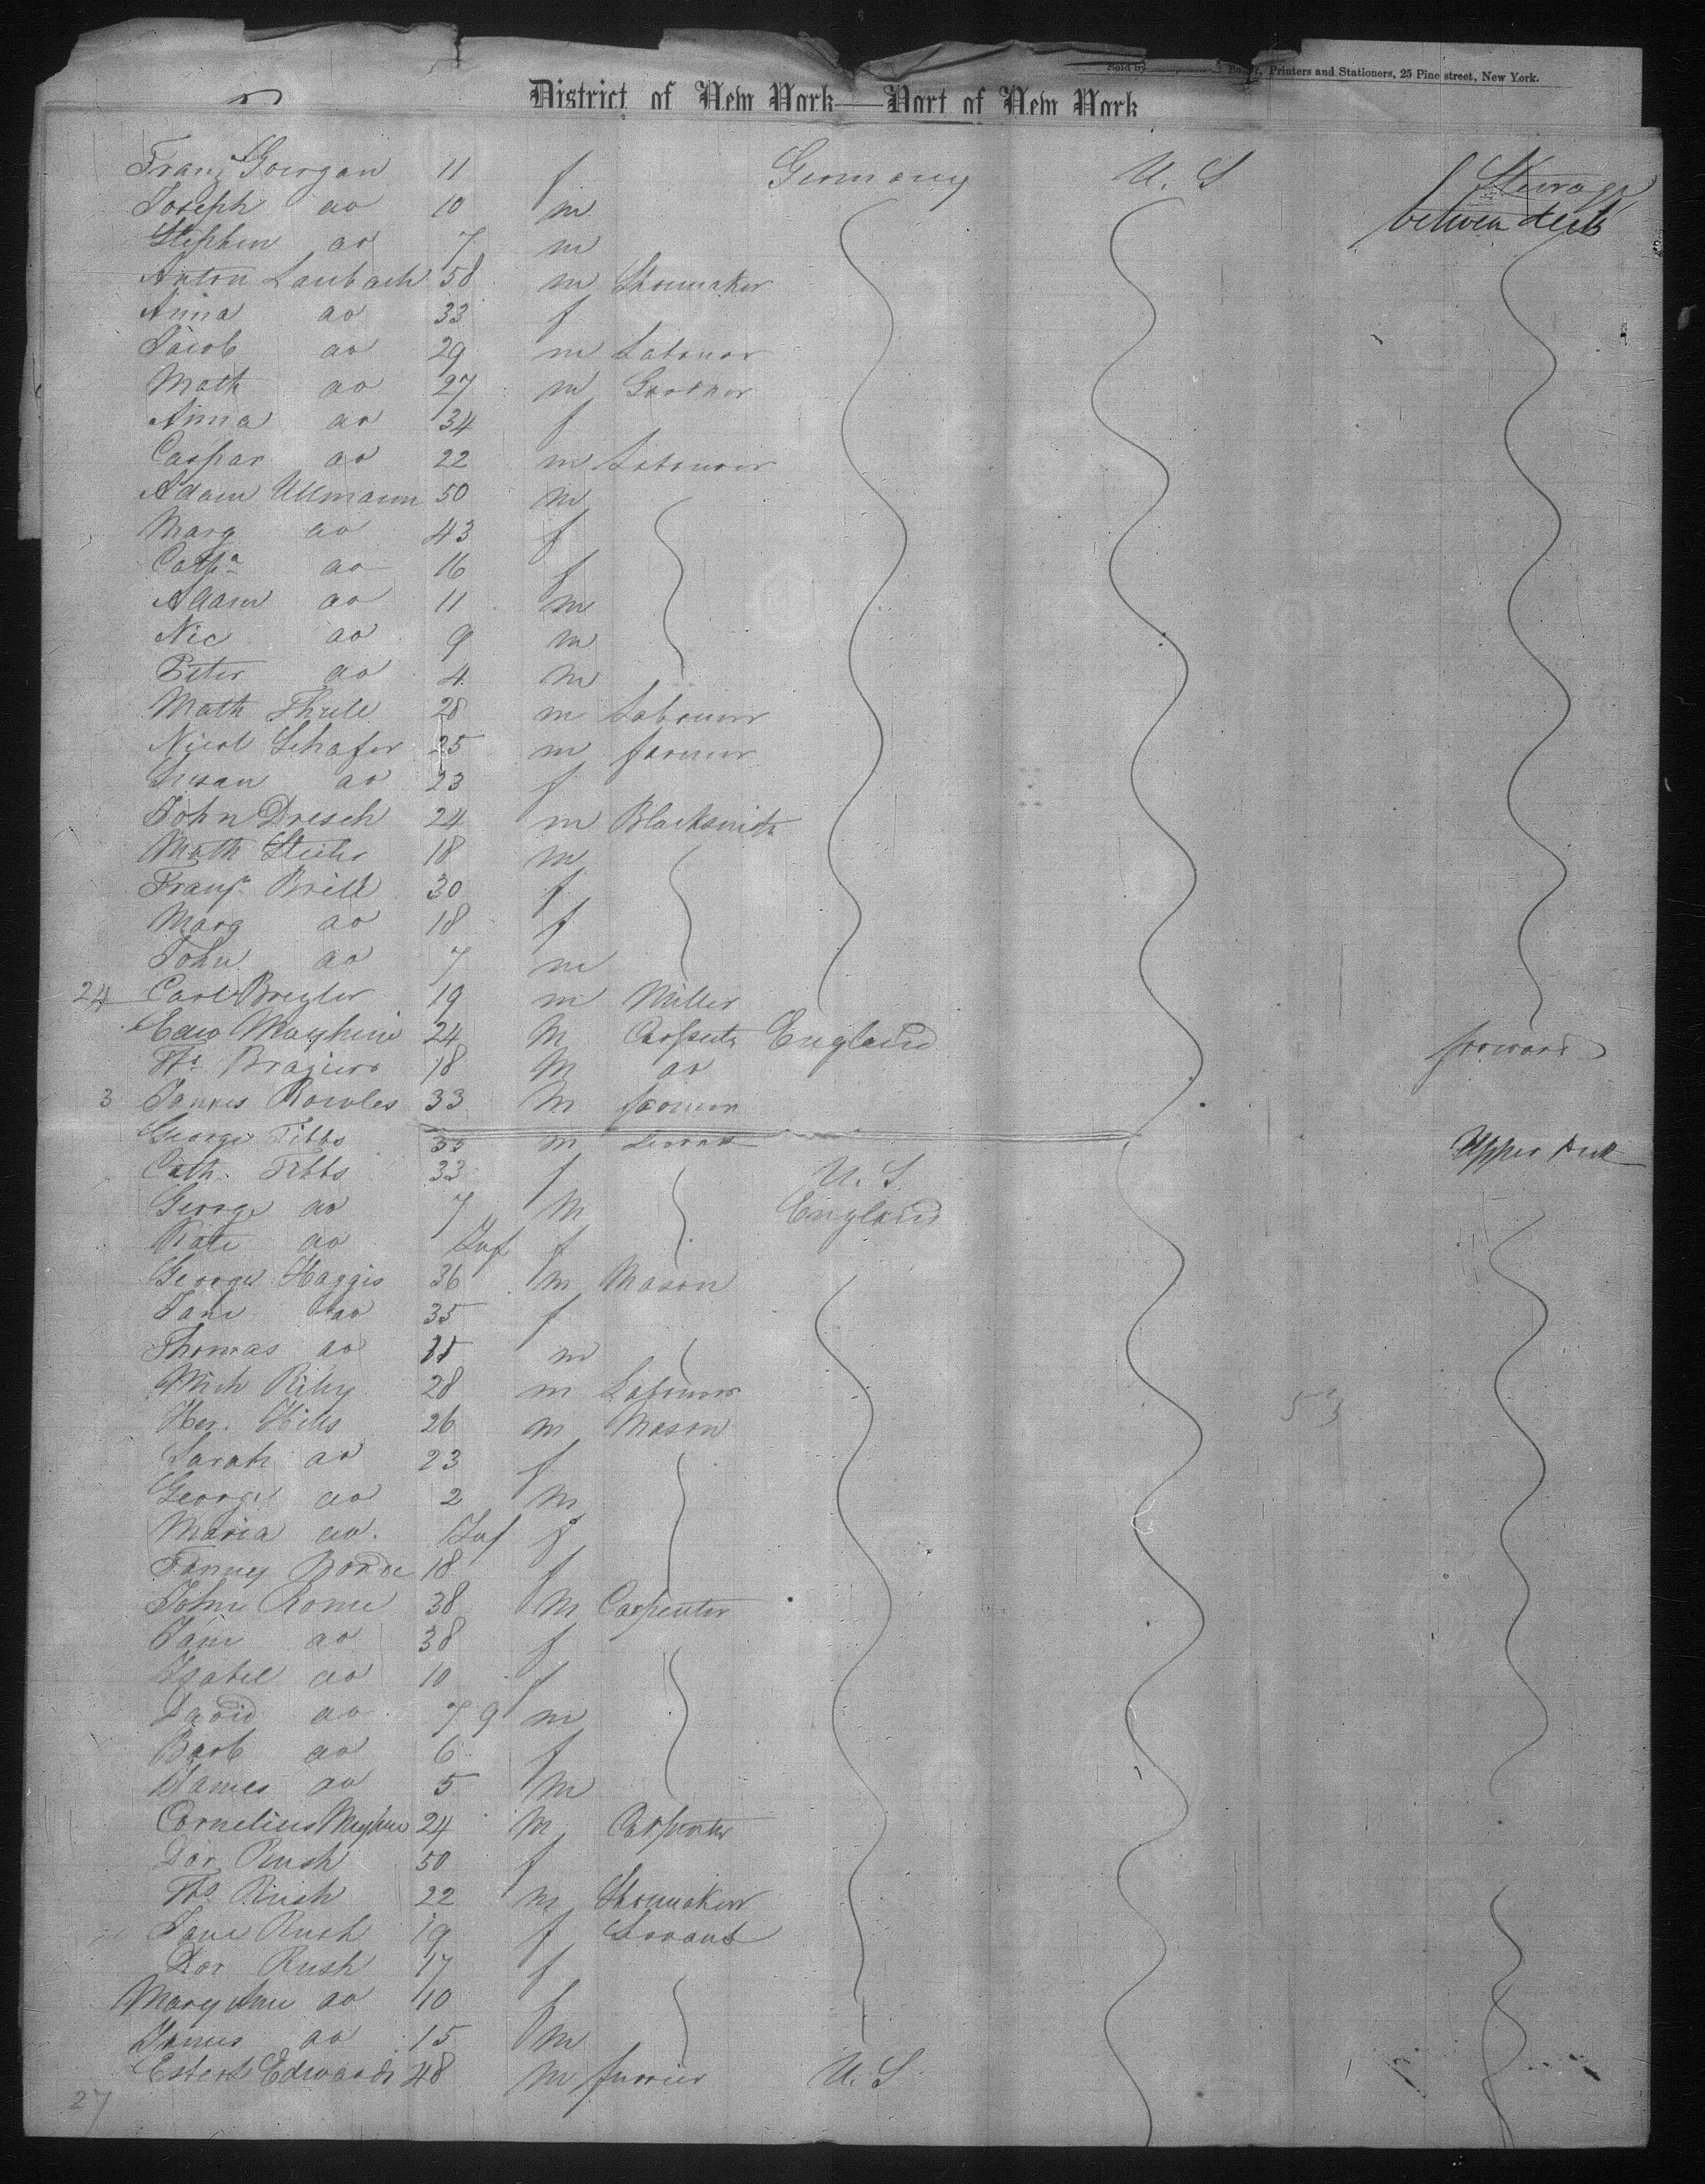 Printers and Stationers, 25 Pine street, New York.
District of New York—Port of New York
Franz 11 f Germany U. S Steerage
Joseph do 10 m between decks
Stephen do 7 m
Anton Laubach 58 m Shoemaker
Anna do 33 f
Jacob do 29 m Labourer
Math do 27 m
Anna do 34 f
Caspar do 22 m Labourer
Adam Ullmann 50 m
Marg do 43 f
Catha do 16 f
Adam do 11 m
Nic do 9 m
Peter do 4 m
Math Thull 28 m Labourer
Nicol Schafer 25 m farmer
Susan do 23 f
John Dresch 24 m Blacksmith
Math 18 m
Brill 30 f
Marg do 18 f
John do 7 m
24 Carl 19 m Miller
Edw 24 M Carpentr England forward
18 M do
3 James Rowles 33 M farmer
George Tibbs 35 m Upper deck
Cath. Tibbs 33 f U. S.
George do 7 M England
Kate do Inf f
George Haggis 36 m Mason
Jane do 35 f
Thomas do m
Mich Riley 28 m Labourer
Hills 26 m Mason
Sarah do 23 f
George do 2 m
Maria do Inf f
Fanney 18 f
John Rome 38 M Carpenter
Jane do 38 f
Isabel do 10 f
David do 7 9 m
Barb do 6 f
James do 5 M
Cornelius 24 M Carpenter
Dor Rush 50 f
Ths Rush 22 m Shoemaker
Jane Rush 19 f Servant
Dor Rush 17 f
Mary Ann do 10 f
James do 15 M
Edwards 48 m furrier U. S
53
27